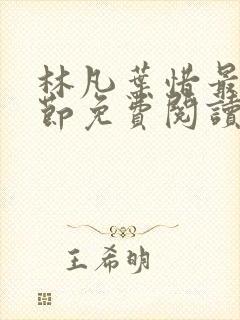 林凡葉惜最
節免費閱讀
王希明